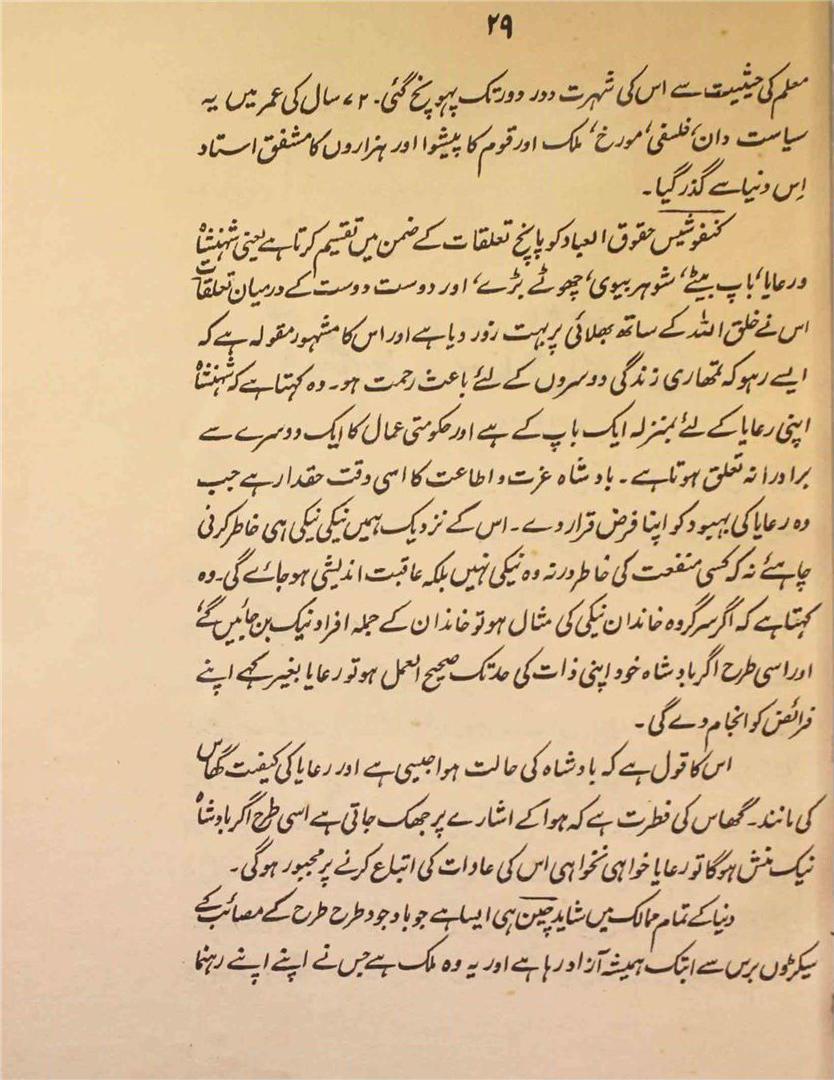 ۲۹
معلم کی حیثیت سے اس کی شہرت دور دور تک پہونچ گئی۔ ۷۲ سال کی عمر میں یہ
سیاست دان، فلسفی، مورخ، ملک اور قوم کا پیشوا اور ہزاروں کا مشفق استاد
اِس دنیا سے گذر گیا۔
کنفوشیس حقوق العباد کو پانچ تعلقات کے ضمن میں تقسیم کرتا ہے یعنی شہنشاہ
و رعایا، باپ بیٹے، شوہر بیوی، چھوٹے بڑے، اور دوست دوست کے درمیان تعلقات
اس نے خلق اللہ کے ساتھ بھلائی پر بہت زور دیا ہے اور اس کا مشہور مقولہ ہے کہ
ایسے رہو کہ تمھاری زندگی دوسروں کے لئے باعث رحمت ہو۔ وہ کہتا ہے کہ شہنشاہ
اپنی رعایا کے لئے بمنزلہ ایک باپ کے ہے اور حکومتی عمال کا ایک دوسرے سے
برادرانہ تعلق ہوتا ہے۔ بادشاہ عزت و اطاعت کا اسی وقت حقدار ہے جب
وہ رعایا کی بہبود کو اپنا فرض قرار دے۔ اس کے نزدیک ہمیں نیکی نیکی ہی خاطر کرنی
چاہئے نہ کہ کسی منفعت کی خاطر ورنہ وہ نیکی نہیں بلکہ عاقبت اندیشی ہو جائے گی۔ وہ
کہتا ہے کہ اگر سرگروہ خاندان نیکی کی مثال ہو تو خاندان کے جملہ افراد نیک بن جائیں گے،
اور اسی طرح اگر بادشاہ خود اپنی ذات کی حد تک صحیح العمل ہو تو رعایا بغیر کہے اپنے
فرائض کو انجام دے گی۔
اس کا قول ہے کہ بادشاہ کی حالت ہوا جیسی ہے اور رعایا کی کیفیت گھاس
کی مانند۔ گھاس کی فطرت ہے کہ ہوا کے اشارے پر جھک جاتی ہے اسی طرح اگر بادشاہ
نیک منش ہوگا تو رعایا خواہی نخواہی اس کی عادات کی اتباع کرنے پر مجبور ہوگی۔
دنیا کے تمام ممالک میں شاید چین ہی ایسا ہے جو باوجود طرح طرح کے مصائب کے
سیکڑوں برس سے ابتک ہمیشہ آزاد رہا ہے اور یہ وہ ملک ہے جس نے اپنے اپنے رہنما